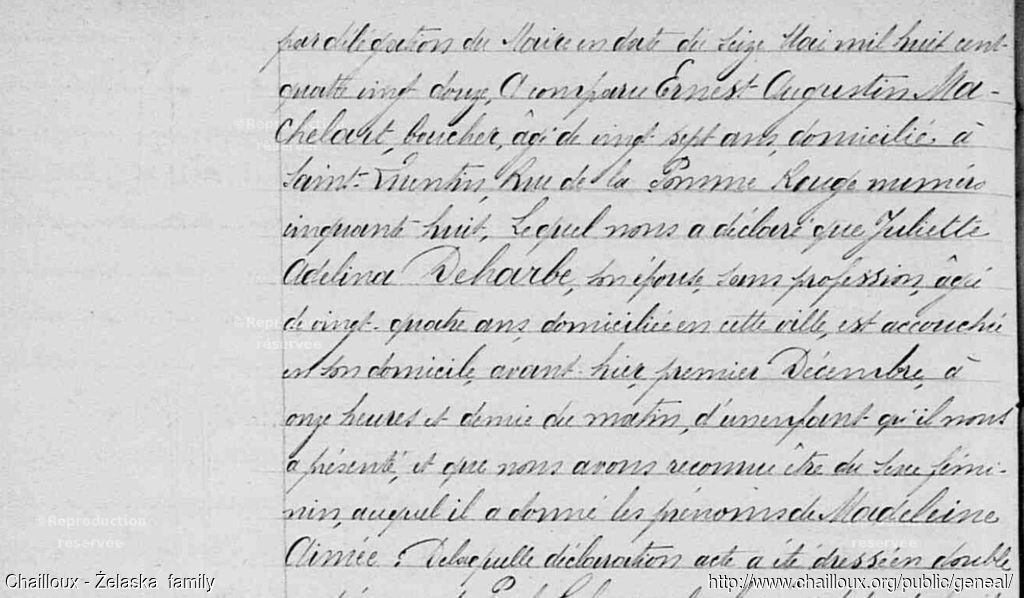 par délégation du Maire en date du seize Mai mil huit cent
quatre vingt douze, A comparu Ernest Augustin Ma-
chelart, boucher, âgé de vingt sept ans, domicilié à
Saint-Quentin, Rue de la Pomme Rouge numéro
cinquante huit, Lequel nous a déclaré que Juliette
Adelina Deharbe, son épouse, sans profession, âgée
de vingt-quatre ans, domiciliée en cette ville, est accouchée
en son domicile, avant-hier, premier Décembre, à
onze heures et demie du matin, d'un enfant qu'il nous
a présenté, et que nous avons reconnu être du sexe fémi-
nin, auquel il a donné les prénoms de Madeleine
Aimée. De laquelle déclaration acte a été dressé en double
Reproduction
réservée
Reproduction
réservée
Reproduction
réservée
Chailloux - Żelaska family
http://www.chailloux.org/public/geneal/